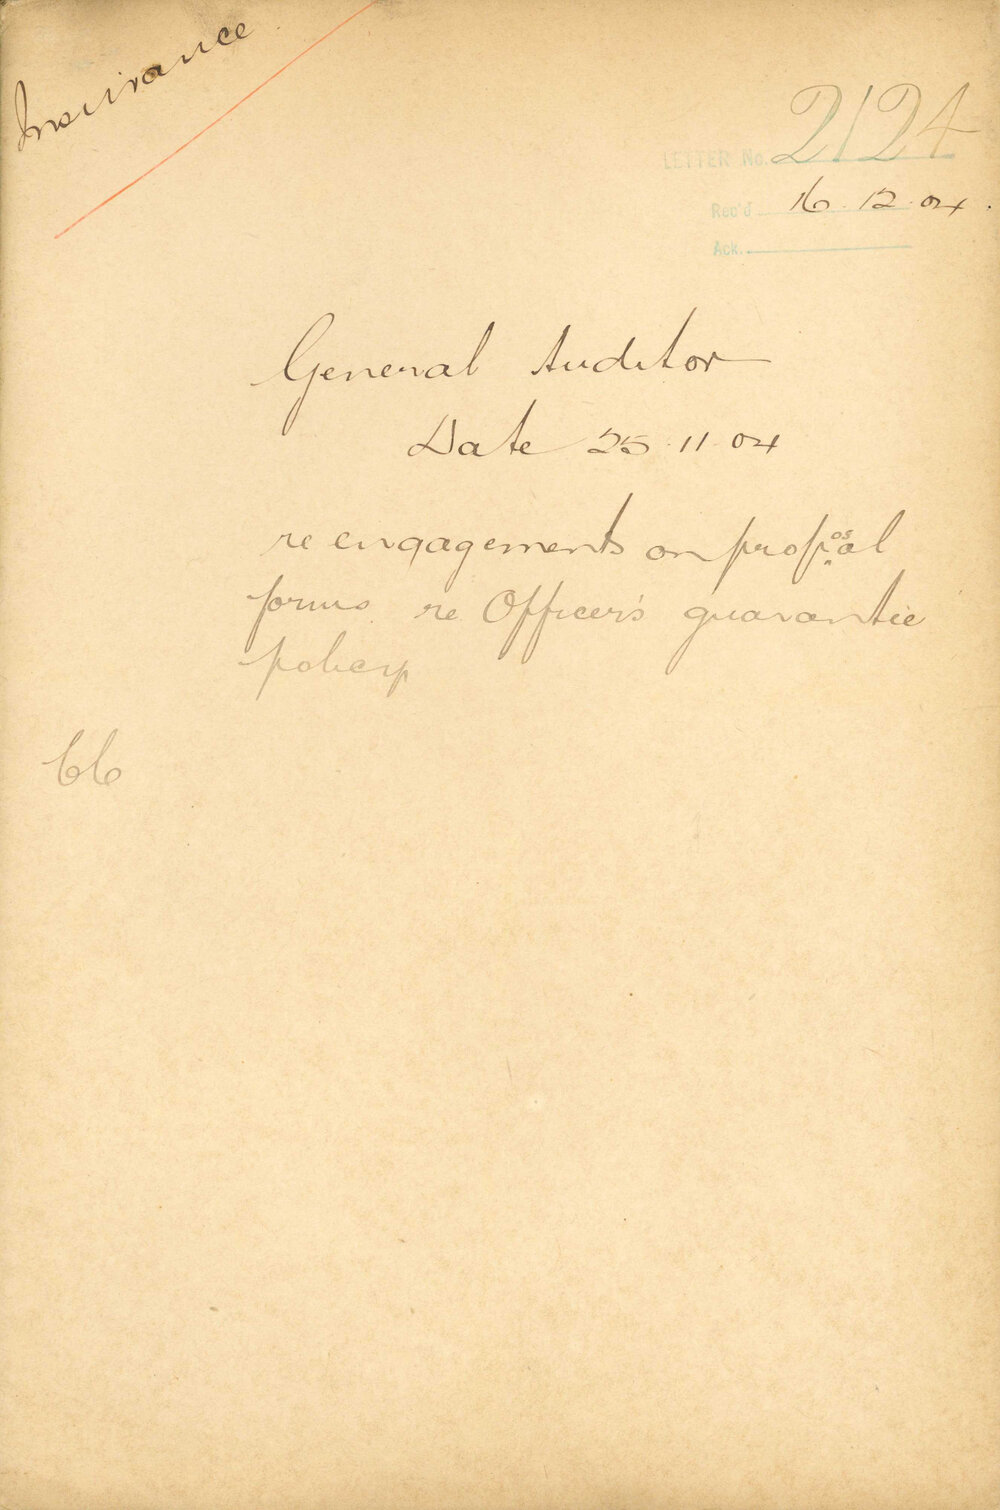 Insurance
LETTER No. 2124
Rec'd 16.12.04.
Ack.
General Auditor
Date 25.11.04
re engagements on proposal
forms re Officer's guarantee
policy